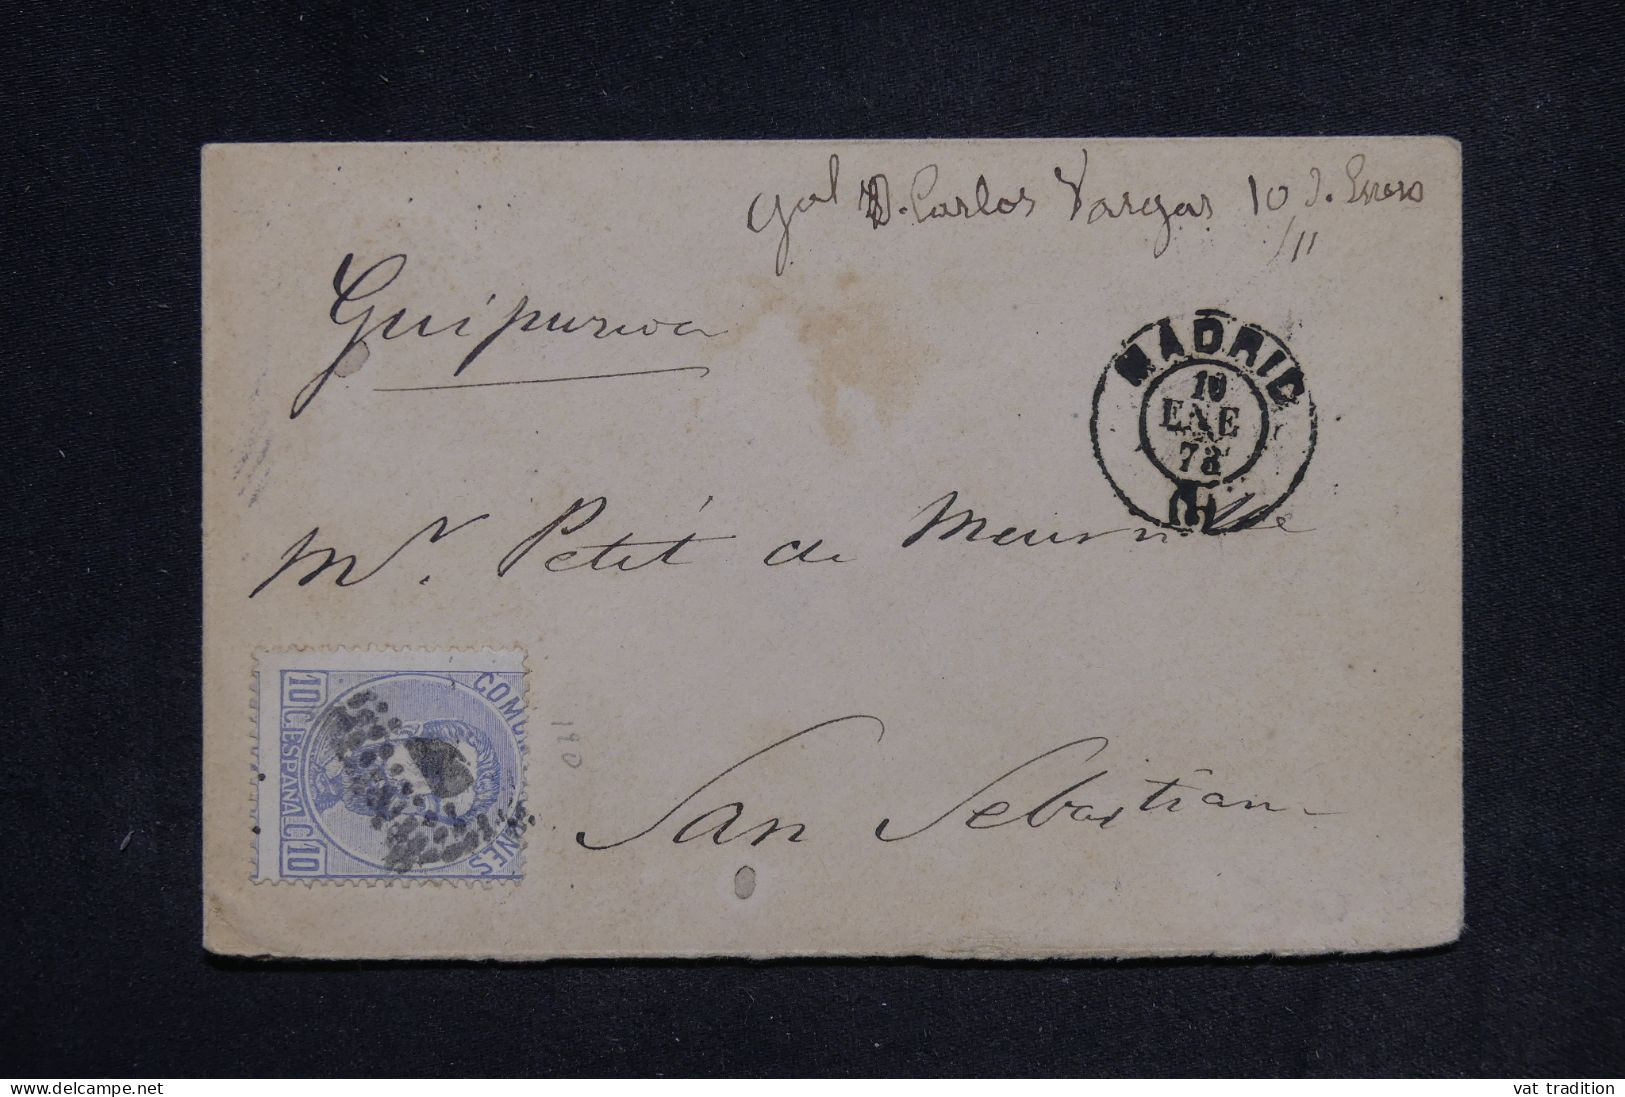 Gal D. Carlos Vargas 10 d. Enero
Guipuzcoa
MADRID
10
ENE
73
(1)
Mr. Petit de Meurville
COMUNICACIONES
10 C. ESPAÑA C. 10
190
San Sebastian
www.delcampe.net
vat tradition